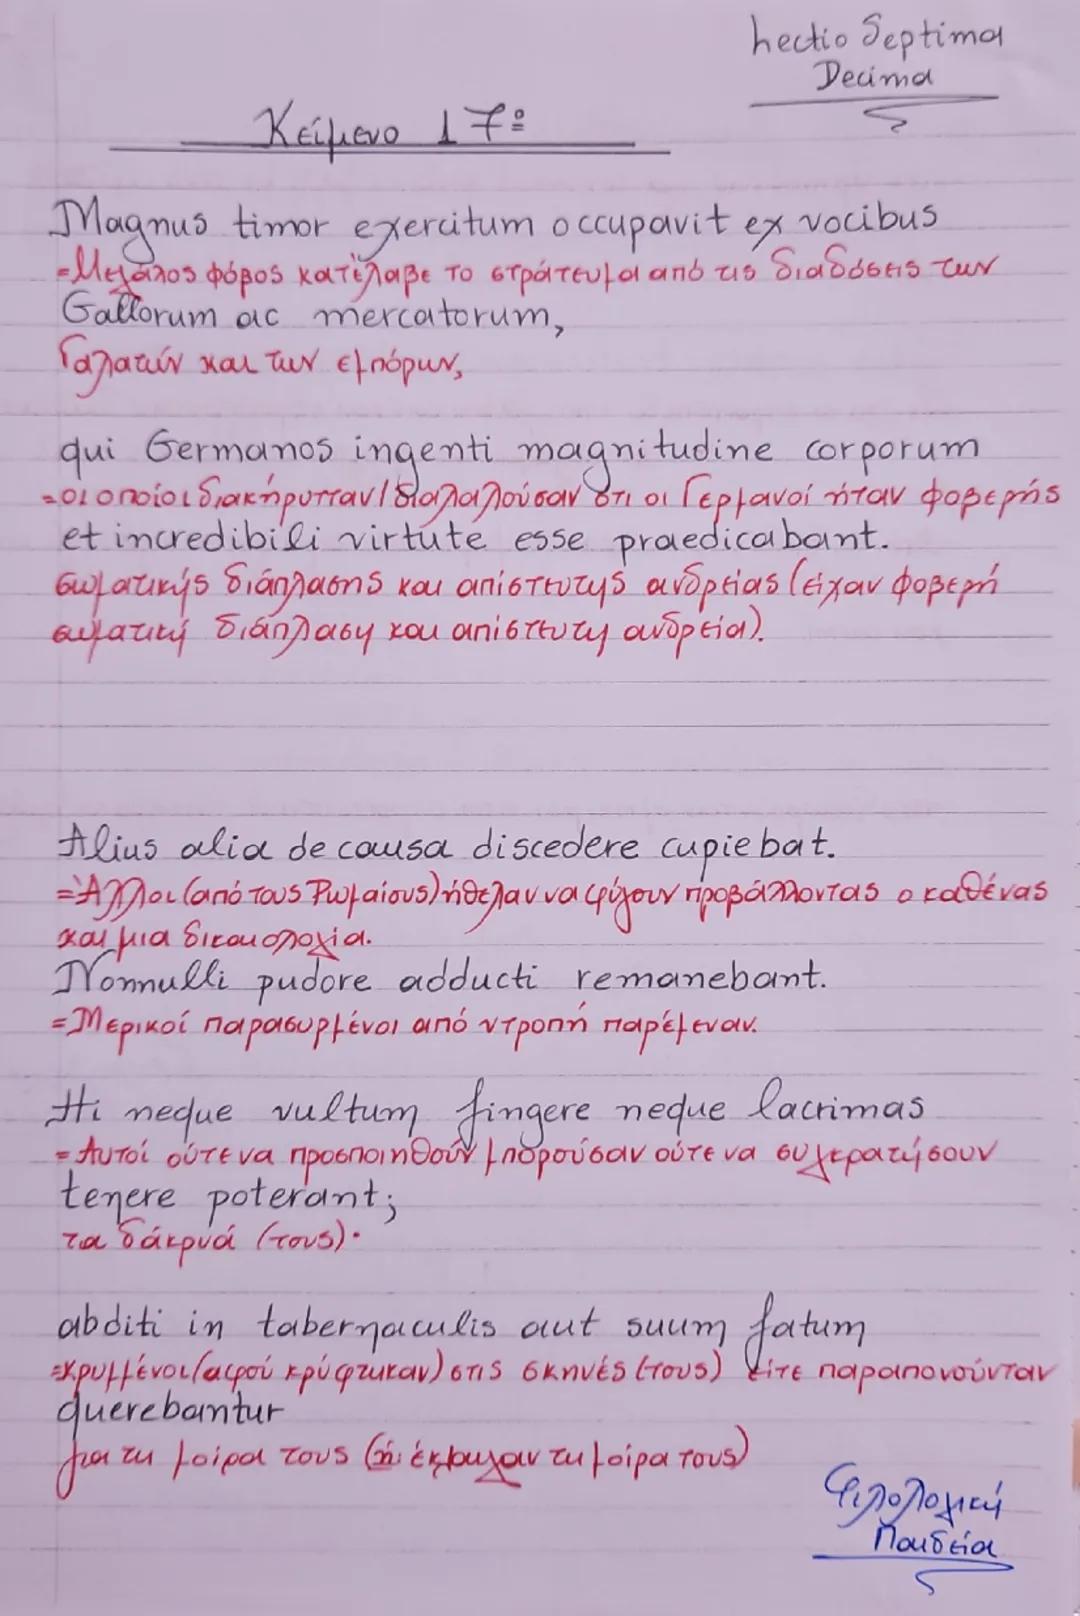 Lectio Septima
Decima
Κείμενο 17º
Magnus timor exercitum occupavit ex vocibus
=Μεγάλος φόβος κατέλαβε το στράτευμα από τις διαδόσεις των
Gallorum ac mercatorum,
Γαλατών και των εμπόρων,
qui Germanos ingenti magnitudine corporum
=οι οποίοι διακήρυτταν/διαλαλούσαν ότι οι Γερμανοί ήταν φοβερής
et incredibili virtute esse praedicabant.
σωματικής διάπλασης και απίστευτης ανδρείας (είχαν φοβερή
σωματική διάπλαση και απίστευτη ανδρεία).
Alius alia de causa discedere cupiebat.
=Άλλοι (από τους Ρωμαίους) ήθελαν να φύγουν προβάλλοντας ο καθένας
και μια δικαιολογία.
Nonnulli pudore adducti remanebant.
=Μερικοί παρασυρμένοι από ντροπή παρέμεναν.
Hi neque vultum fingere neque lacrimas
=Αυτοί ούτε να προσποιηθούν μπορούσαν ούτε να συγκρατήσουν
tenere poterant;
τα δάκρυά (τους)·
abditi in tabernaculis aut suum fatum
=κρυμμένοι (αφού κρύφτηκαν) στις σκηνές (τους) είτε παραπονούνταν
querebantur
για τη μοίρα τους (ή: έκλαιγαν τη μοίρα τους)
Φιλολογική
Παιδεία